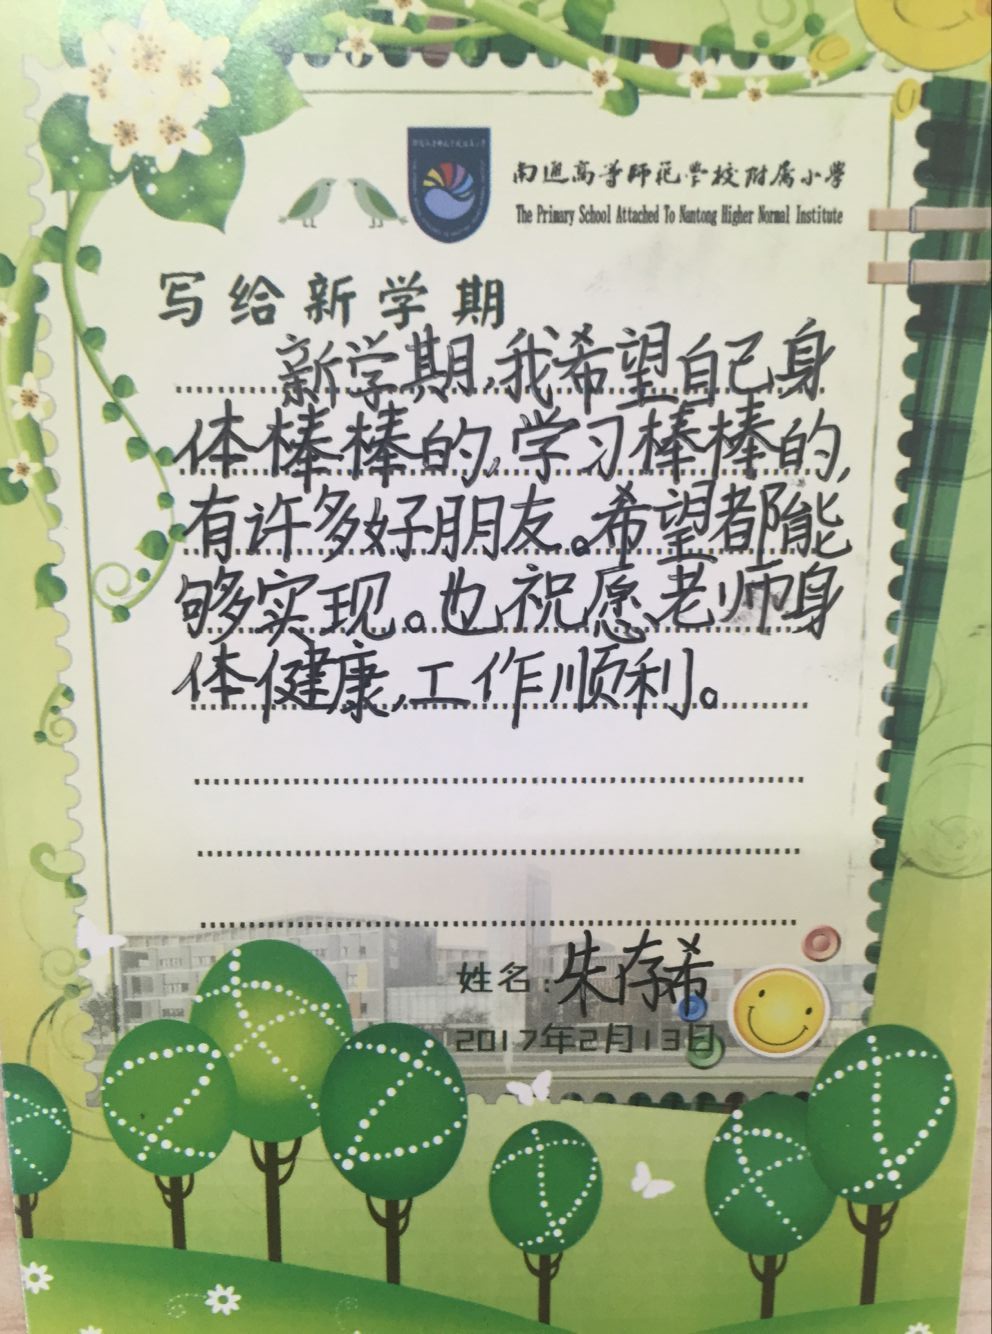 南通高等师范学校附属小学
The Primary School Attached To Nantong Higher Normal Institute
写给新学期
新学期,我希望自己身
体棒棒的,学习棒棒的,
有许多好朋友。希望都能
够实现。也祝愿老师身
体健康,工作顺利。
姓名:朱存希
2017年2月13日